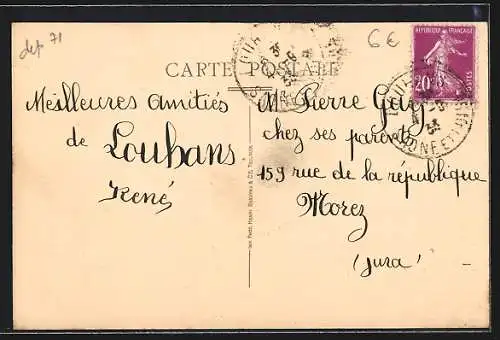 dep 71
6€
CARTE POSTALE
RÉPUBLIQUE FRANÇAISE
20
POSTES
Meilleures amitiés
de Louhans
René
M. Pierre
chez ses parents
159 rue de la république
Morez
(Jura)